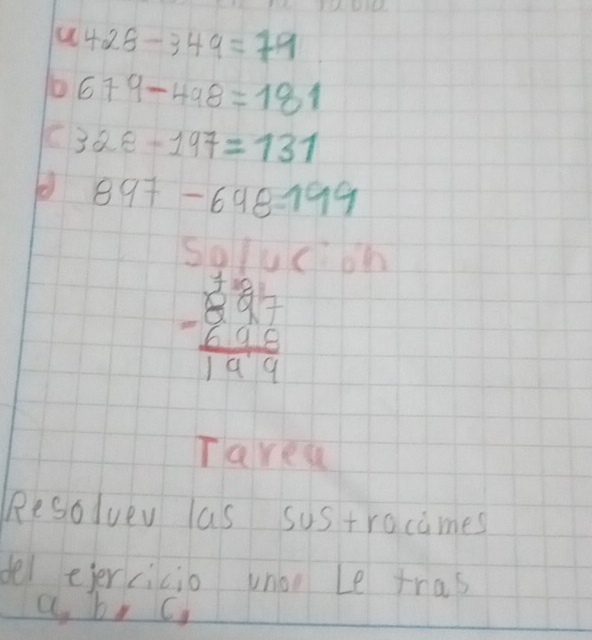 a 428-349=79
b 679-498=181
c 328-197=131
d 897-698=199
Solución
897
- 698
199
Tarea
Resolver las sustracciones
del ejercicio uno Letras
a, b, c,